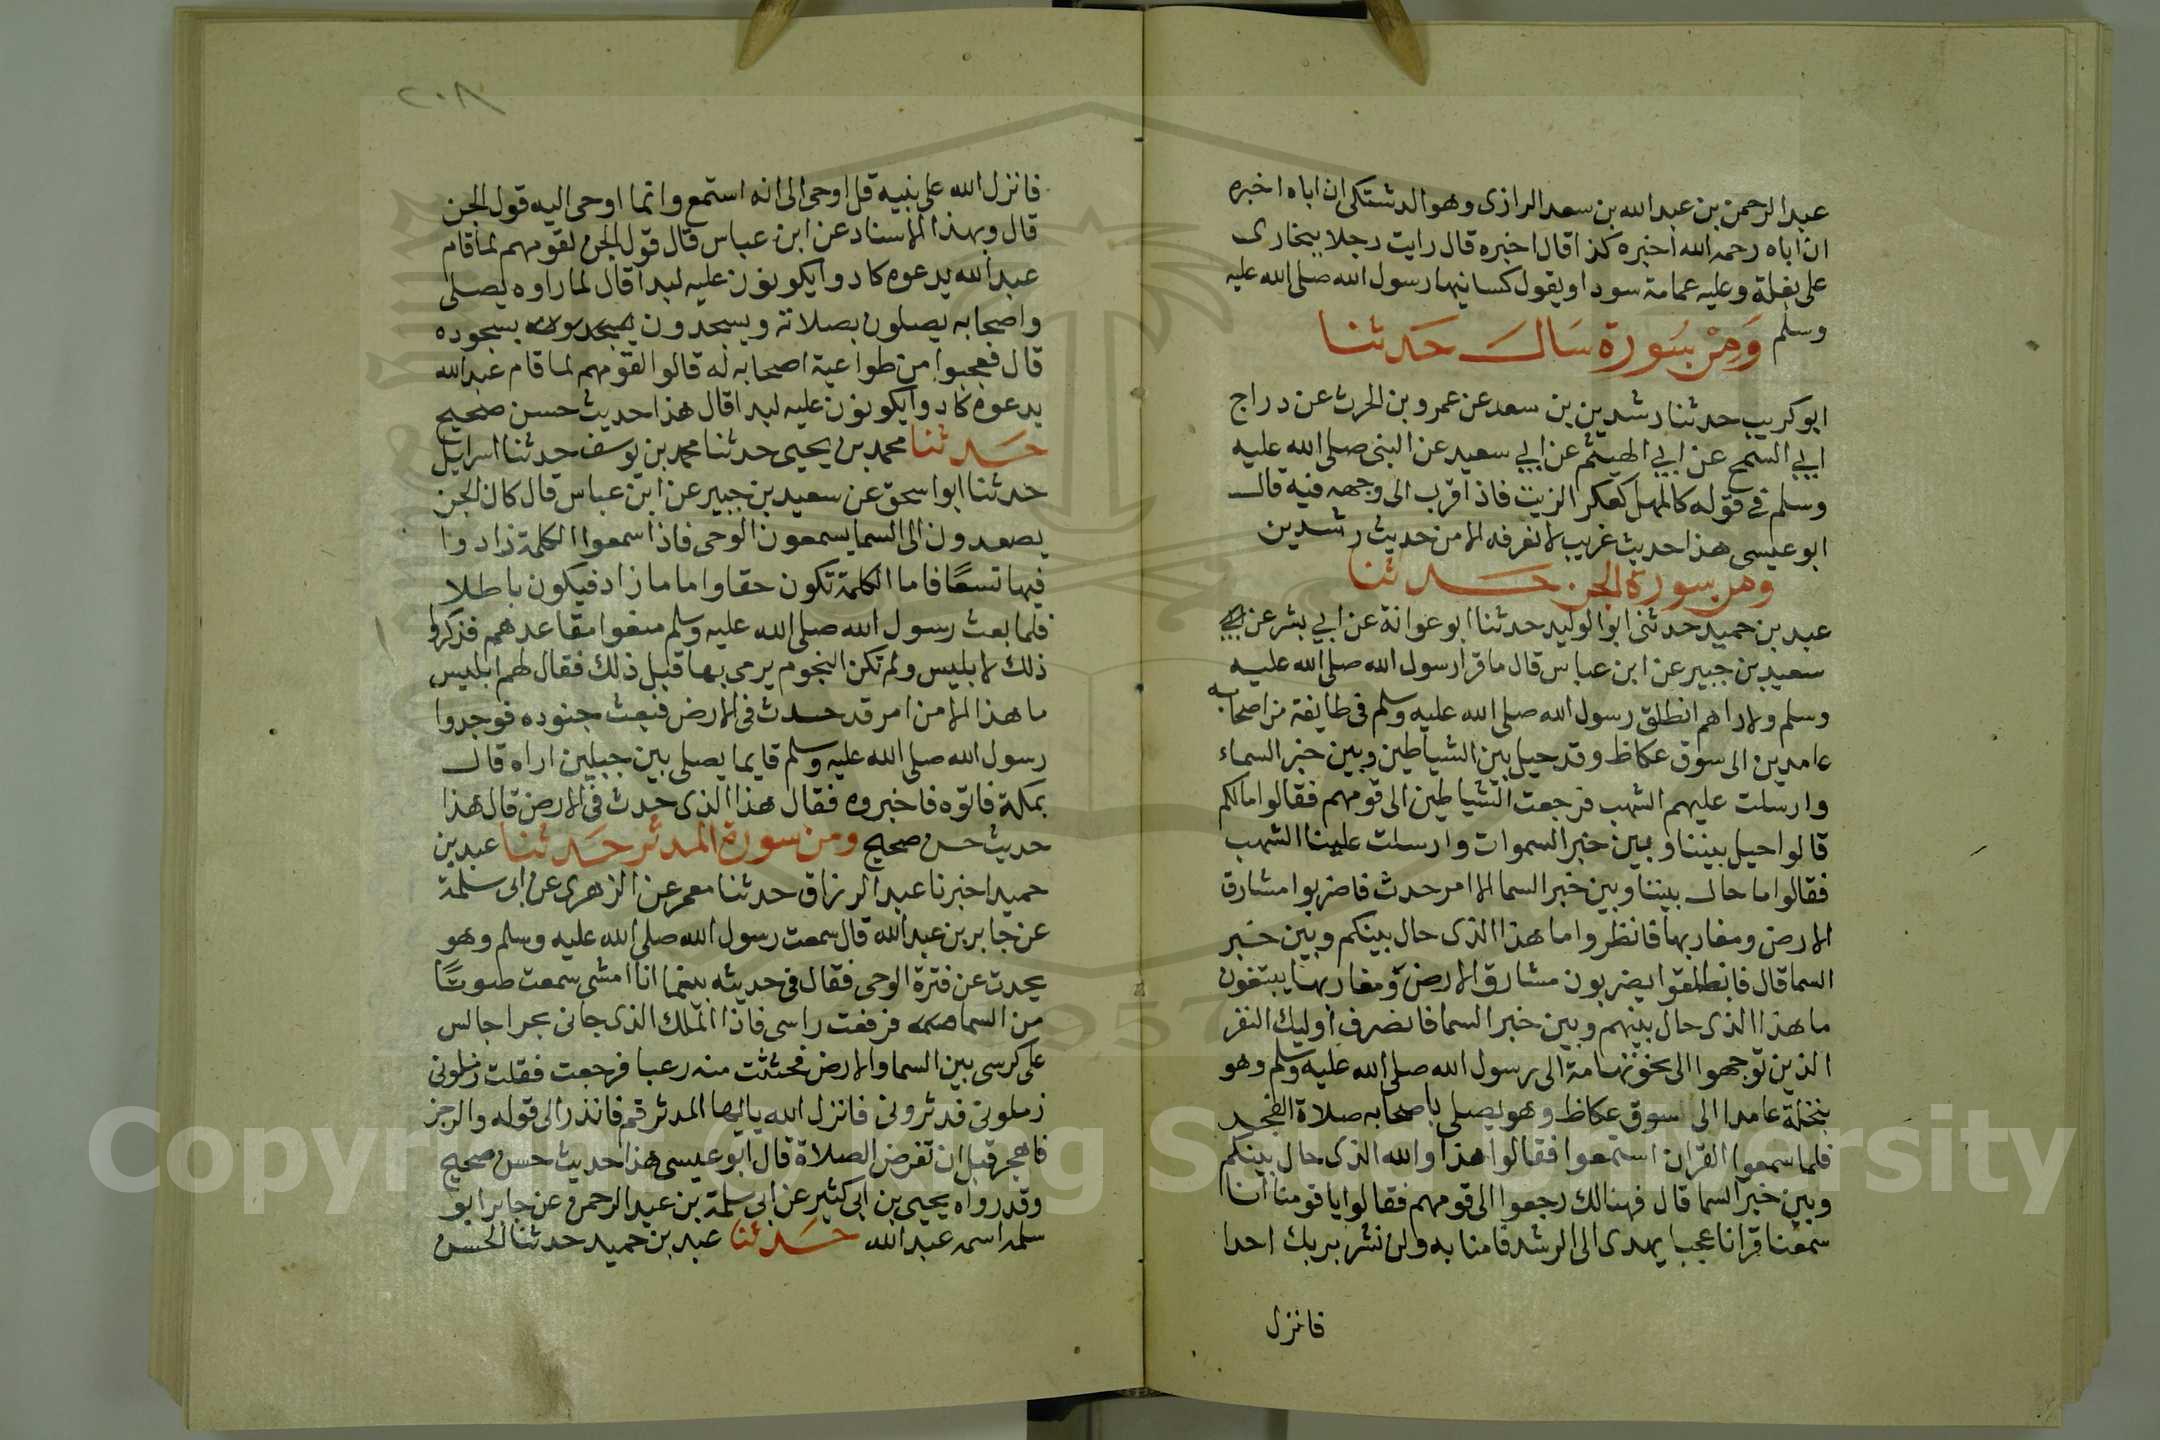 عبد الرحمن بن عبد الله بن سعد الرازى وهو الدشتكى ان اباه اخبره
ان اباه رحمه الله اخبره كذا قال اخبره قال رايت رجلا ببخارى
على بغلة وعليه عمامة سودا ويقول كسانيها رسول الله صلى الله عليه
وسلم ومن سورة سال حدثنا
ابو كريب حدثنا رشدين بن سعد عن عمرو بن الحرث عن دراج
ابي السمح عن ابي الهيثم عن ابي سعيد عن النبى صلى الله عليه
وسلم في قوله كالمهل كعكر الزيت فاذا قرب الى وجهه فيه قال
ابو عيسى هذا حديث غريب لا نعرفه الا من حديث رشدين
ومن سورة الجن حدثنا
عبد بن حميد حدثنى ابو الوليد حدثنا ابو عوانة عن ابي بشر عن
سعيد بن جبير عن ابن عباس قال ما قرا رسول الله صلى الله عليه
وسلم ولا راهم انطلق رسول الله صلى الله عليه وسلم فى طايفة من اصحابه
عامدين الى سوق عكاظ وقد حيل بين الشياطين وبين خبر السماء
وارسلت عليهم الشهب فرجعت الشياطين الى قومهم فقالوا مالكم
قالوا حيل بيننا وبين خبر السموات وارسلت علينا الشهب
فقالوا ما حال بيننا وبين خبر السما الا امر حدث فاضربوا مشارق
الارض ومغاربها فانظروا ما هذا الذى حال بينكم وبين خبر
السما قال فانطلقوا يضربون مشارق الارض ومغاربها يبتغون
ما هذا الذى حال بينهم وبين خبر السما فانصرف اوليك النفر
الذين توجهوا الى نحو تهامة الى رسول الله صلى الله عليه وسلم وهو
بنخلة عامدا الى سوق عكاظ وهو يصلى باصحابه صلاة الفجر
فلما سمعوا القران استمعوا فقالوا هذا والله الذى حال بينكم
وبين خبر السما قال فهنالك رجعوا الى قومهم فقالوا يا قومنا انا
سمعنا قرانا عجبا يهدى الى الرشد فامنا به ولن نشرك بربك احدا
فانزل
٢٠٨
فانزل الله على نبيه قل اوحى الى انه استمع وانما اوحى اليه قول الجن
قال وبهذا الاسناد عن ابن عباس قال قول الجن لقومهم لما قام
عبد الله يدعوه كادوا يكونون عليه لبدا قال لما راوه يصلى
واصحابه يصلون بصلاته ويسجدون بسجوده
قال فعجبوا من طواعية اصحابه له قالوا لقومهم لما قام عبد الله
يدعوه كادوا يكونون عليه لبدا قال هذا حديث حسن صحيح
حدثنا محمد بن يحيى حدثنا محمد بن يوسف حدثنا اسرايل
حدثنا ابو اسحق عن سعيد بن جبير عن ابن عباس قال كان الجن
يصعدون الى السما يسمعون الوحى فاذا سمعوا الكلمة زادوا
فيها تسعا فاما الكلمة تكون حقا واما ما زاد فيكون باطلا
فلما بعث رسول الله صلى الله عليه وسلم منعوا مقاعدهم فذكروا
ذلك لابليس ولم تكن النجوم يرمى بها قبل ذلك فقال لهم ابليس
ما هذا الا من امر قد حدث فى الارض فبعث جنوده فوجدوا
رسول الله صلى الله عليه وسلم قايما يصلى بين جبلين اراه قال
بمكة فاتوه فاخبروه فقال هذا الذى حدث فى الارض قال هذا
حديث حسن صحيح ومن سورة المدثر حدثنا عبد بن
حميد اخبرنا عبد الرزاق حدثنا معمر عن الزهرى عن ابى سلمة
عن جابر بن عبد الله قال سمعت رسول الله صلى الله عليه وسلم وهو
يحدث عن فترة الوحى فقال فى حديثه بينما انا امشى سمعت صوتا
من السما فرفعت راسى فاذا الملك الذى جانى بحرا جالس
على كرسى بين السما والارض فجثثت منه رعبا فرجعت فقلت زملونى
زملونى فدثرونى فانزل الله يا ايها المدثر قم فانذر الى قوله والرجز
فاهجر قبل ان تفرض الصلاة قال ابو عيسى هذا حديث حسن صحيح
وقد رواه يحيى بن ابى كثير عن ابى سلمة بن عبد الرحمن عن جابر ابو
سلمة اسمه عبد الله حدثنا عبد بن حميد حدثنا الحسن
Copyright © King Saud University
1957